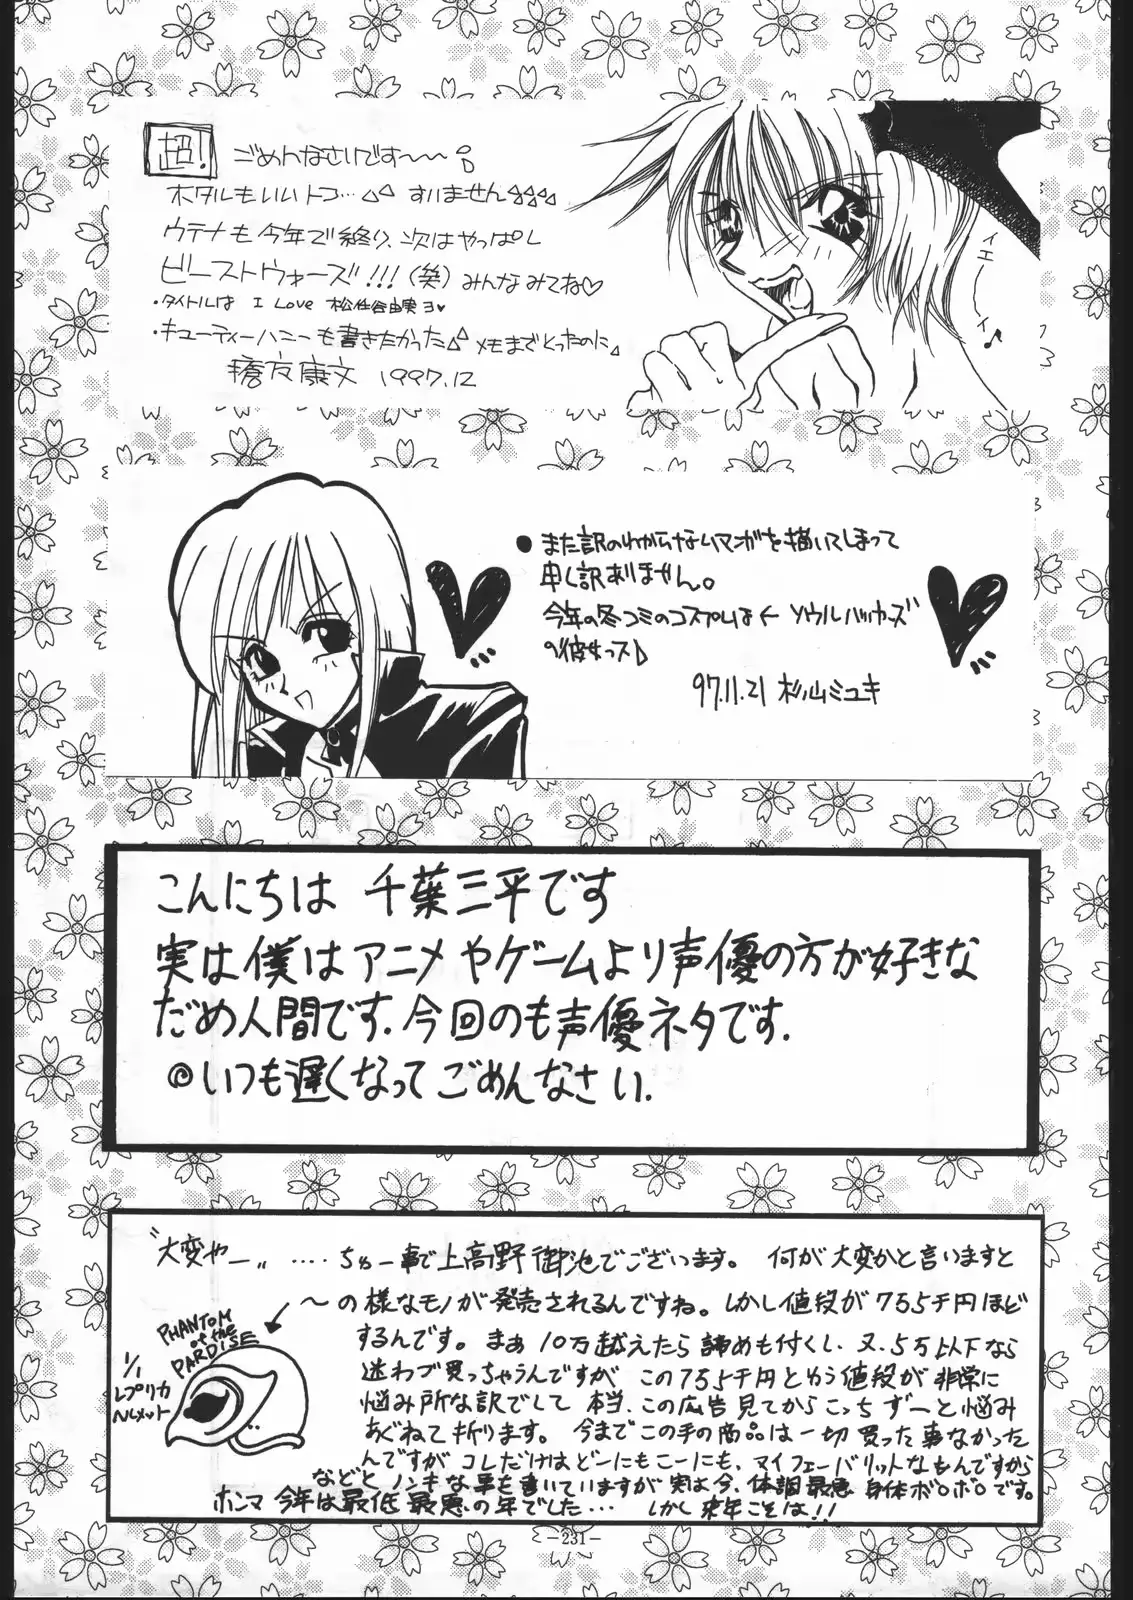 超！ ごめんなさいです〜〜〜
ホタルもいいトコ… すいません
ウテナも今年で終り、次はやっぱし
ビーストウォーズ!!!（笑）みんなみてね♡
・タイトルは I Love 松任谷由実ヨ♥
・キューティーハニーも書きたかった メモまでとったのに
友康文 1997.12
イエーイ♪
●また訳のわからないマンガを描いてしまって
申し訳ありません。
今年の冬コミのコスプレは← ソウルハッカーズ
の彼女っス
97.11.21 杉山ミユキ
こんにちは 千葉三平です
実は僕はアニメやゲームより声優の方が好きな
だめ人間です.今回のも声優ネタです.
◎いつも遅くなってごめんなさい.
〝大変やー〟‥‥ちゅー事で上高野御池でございます。 何が大変かと言いますと
〜の様なモノが発売されるんですね。しかし値段が7万5千円ほど
するんです。まぁ10万越えたら諦めも付くし、又、5万以下なら
迷わず買っちゃうんですが この7万5千円という値段が非常に
悩み所な訳でして 本当、この広告見てからこっちずーと悩み
あぐねて折ります。今までこの手の商品は一切買った事なかった
んですが コレだけはどーにもこーにも、マイフェーバリットなもんですから
などとノンキな事を書いていますが実は今、体調最悪 身体ボロボロです。
ホンマ今年は最低最悪の年でした… しかし来年こそは!!
PHANTOM
of the
PARDISE
1/1
レプリカ
ヘルメット
—231—